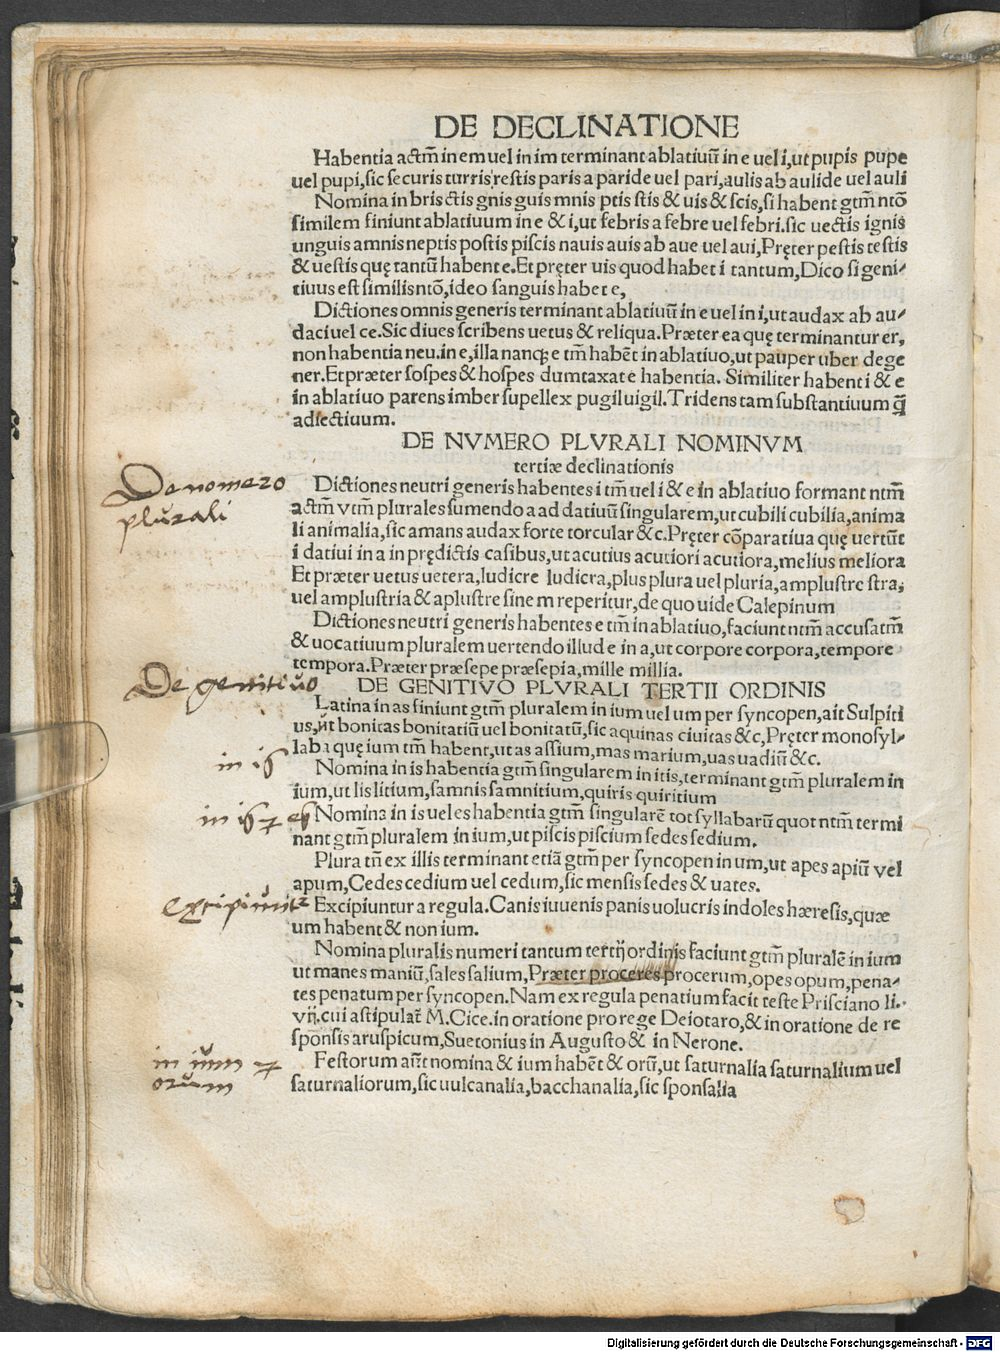 DE DECLINATIONE
Habentia actm̄ in em uel in im terminant ablatiuū in e uel i, ut pupis pupe
uel pupi, sic securis turris restis paris a paride uel pari, aulis ab aulide uel auli
Nomina in bris ctis gnis guis mnis ptis stis & uis & scis, si habent gtm̄ ntō
similem finiunt ablatiuum in e & i, ut febris a febre uel febri. sic uectis ignis
unguis amnis neptis postis piscis nauis auis ab aue uel aui, Pręter pestis testis
& uestis quę tantū habent e. Et pręter uis quod habet i tantum, Dico si geni-
tiuus est similis ntō, ideo sanguis habet e,
Dictiones omnis generis terminant ablatiuū in e uel in i, ut audax ab au-
daci uel ce. Sic diues scribens uetus & reliqua. Præter ea quę terminantur er,
non habentia neu. in e, illa nanqꝫ e tm̄ habēt in ablatiuo, ut pauper uber dege
ner. Et præter sospes & hospes dumtaxat e habentia. Similiter habent i & e
in ablatiuo parens imber supellex pugil uigil. Tridens tam substantiuum q̄
adiectiuum.
DE NVMERO PLVRALI NOMINVM
tertiæ declinationis
De nomero
plurali
Dictiones neutri generis habentes i tm̄ uel i & e in ablatiuo formant ntm̄
actm̄ vtm̄ plurales sumendo a ad datiuū singularem, ut cubili cubilia, anima
li animalia, sic amans audax forte torcular &c. Pręter cōparatiua quę uertūt
i datiui in a in prędictis casibus, ut acutius acutiori acutiora, melius meliora
Et præter uetus uetera, ludicre ludicra, plus plura uel pluria, amplustre stra,
uel amplustria & aplustre sine m reperitur, de quo uide Calepinum
Dictiones neutri generis habentes e tm̄ in ablatiuo, faciunt ntm̄ accusatm̄
& uocatiuum pluralem uertendo illud e in a, ut corpore corpora, tempore
tempora. Præter præsepe præsepia, mille millia.
De genitiuo
DE GENITIVO PLVRALI TERTII ORDINIS
Latina in as finiunt gtm̄ pluralem in ium uel um per syncopen, ait Sulpiti
us, ut bonitas bonitatiū uel bonitatū, sic aquinas ciuitas &c, Pręter monosyl-
laba quę ium tm̄ habent, ut as assium, mas marium, uas uadiū &c.
in is
Nomina in is habentia gtm̄ singularem in itis, terminant gtm̄ pluralem in
ium, ut lis litium, samnis samnitium, quiris quiritium
in is et es
Nomina in is uel es habentia gtm̄ singularē tot syllabarū quot ntm̄ termi
nant gtm̄ pluralem in ium, ut piscis piscium sedes sedium.
Plura tn̄ ex illis terminant etiā gtm̄ per syncopen in um, ut apes apiū vel
apum, Cedes cedium uel cedum, sic mensis sedes & uates.
Excipiuntur
Excipiuntur a regula. Canis iuuenis panis uolucris indoles hæresis, quæ
um habent & non ium.
Nomina pluralis numeri tantum tertij ordinis faciunt gtm̄ pluralē in ium
ut manes maniū, sales salium, Præter proceres procerum, opes opum, pena-
tes penatum per syncopen. Nam ex regula penatium facit teste Prisciano li.
vij. cui astipulat̄ M. Cice. in oratione pro rege Deiotaro, & in oratione de re
sponsis aruspicum, Suetonius in Augusto & in Nerone.
in ium et
orum
Festorum aūt nomina & ium habēt & orū, ut saturnalia saturnalium uel
saturnaliorum, sic uulcanalia, bacchanalia, sic sponsalia
Digitalisierung gefördert durch die Deutsche Forschungsgemeinschaft - DFG